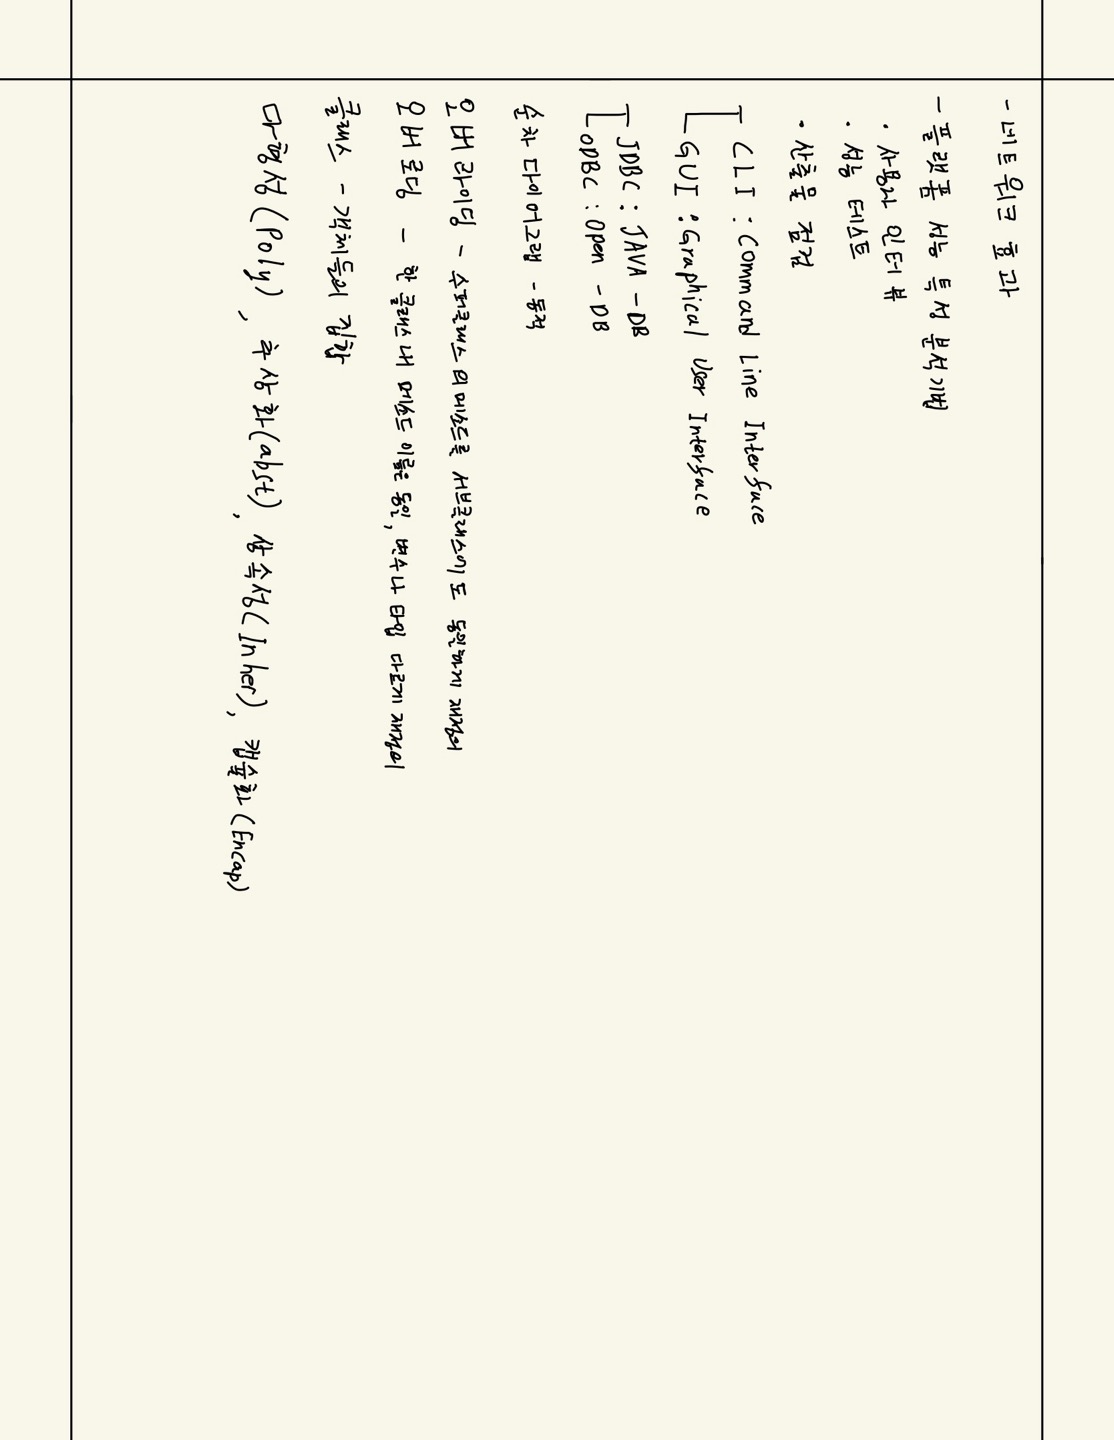 - 네트워크 효과
- 플랫폼 성능 특성 분석기법
· 사용자 인터뷰
· 성능 테스트
· 산출물 점검
CLI : Command Line Interface
GUI : Graphical User Interface
JDBC : JAVA - DB
ODBC : Open - DB
순차 다이어그램 - 동적
오버라이딩 - 슈퍼클래스의 메소드를 서브클래스가도 동일하게 재정의
오버로딩 - 한 클래스 내 메소드 이름은 동일, 변수나 타입 다르게 재정의
클래스 - 객체들의 집합
다형성(Poly), 추상화(abst), 상속성(Inher), 캡슐화(Encap)